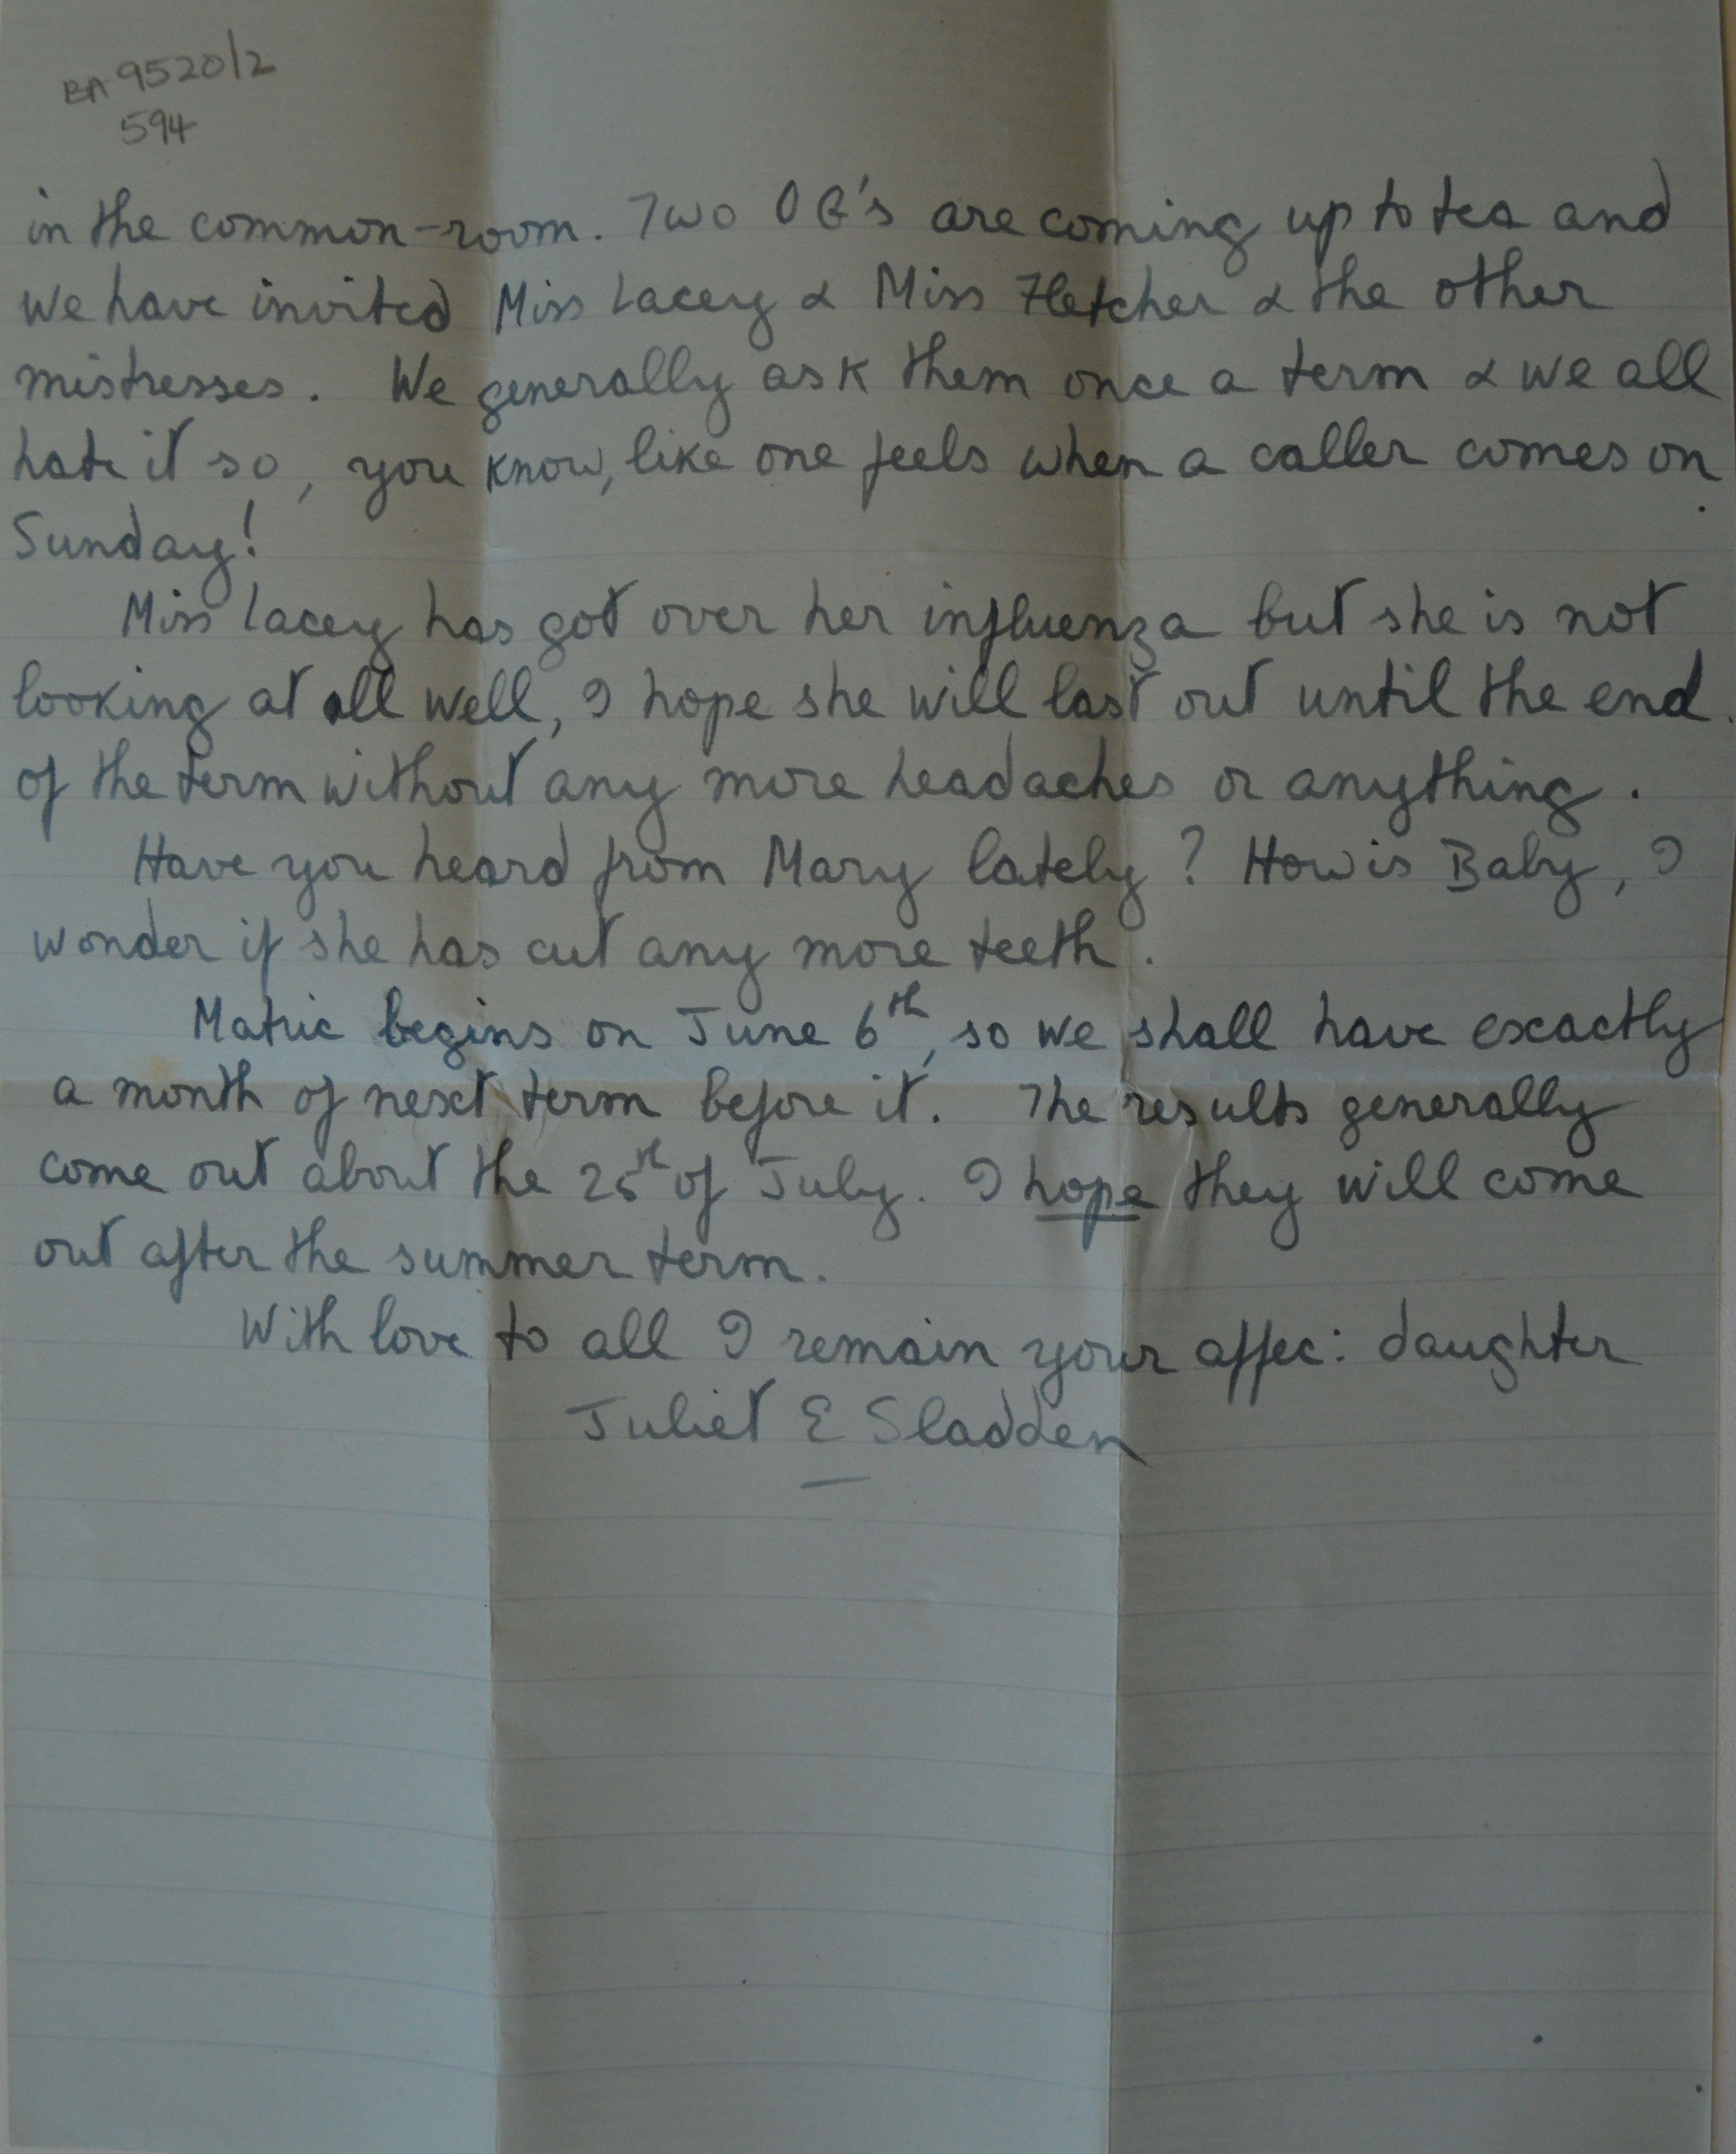 BA 9520/2
594
in the common-room. Two O G's are coming up to tea and
we have invited Miss Lacey & Miss Fletcher & the other
mistresses. We generally ask them once a term & we all
hate it so, you know, like one feels when a caller comes on
Sunday!
Miss Lacey has got over her influenza but she is not
looking at all well, I hope she will last out until the end
of the term without any more headaches or anything.
Have you heard from Mary lately? How is Baby, I
wonder if she has cut any more teeth.
Matric begins on June 6th, so we shall have exactly
a month of next term before it. The results generally
come out about the 25th of July. I hope they will come
out after the summer term.
With love to all I remain your affec: daughter
Juliet E Sladden